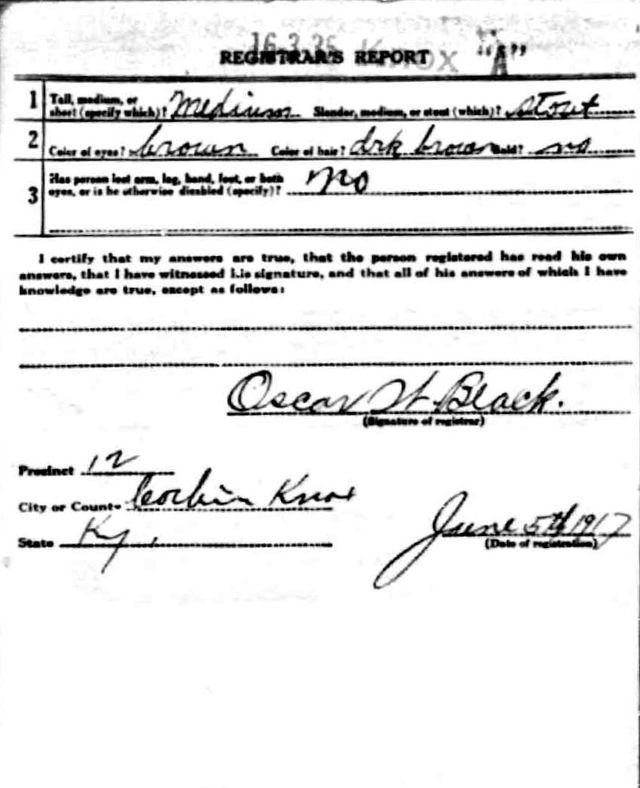 16-3-35 Knox "A"
REGISTRAR'S REPORT
1 Tall, medium, or short (specify which)? Medium Slender, medium, or stout (which)? Stout
2 Color of eyes? brown Color of hair? drk brown Bald? no
3 Has person lost arm, leg, hand, foot, or both eyes, or is he otherwise disabled (specify)? no
I certify that my answers are true, that the person registered has read his own
answers, that I have witnessed his signature, and that all of his answers of which I have
knowledge are true, except as follows:
Oscar W. Black.
(Signature of registrar)
Precinct 12
City or County Corbin Knox
State Ky.
June 5th 1917
(Date of registration)